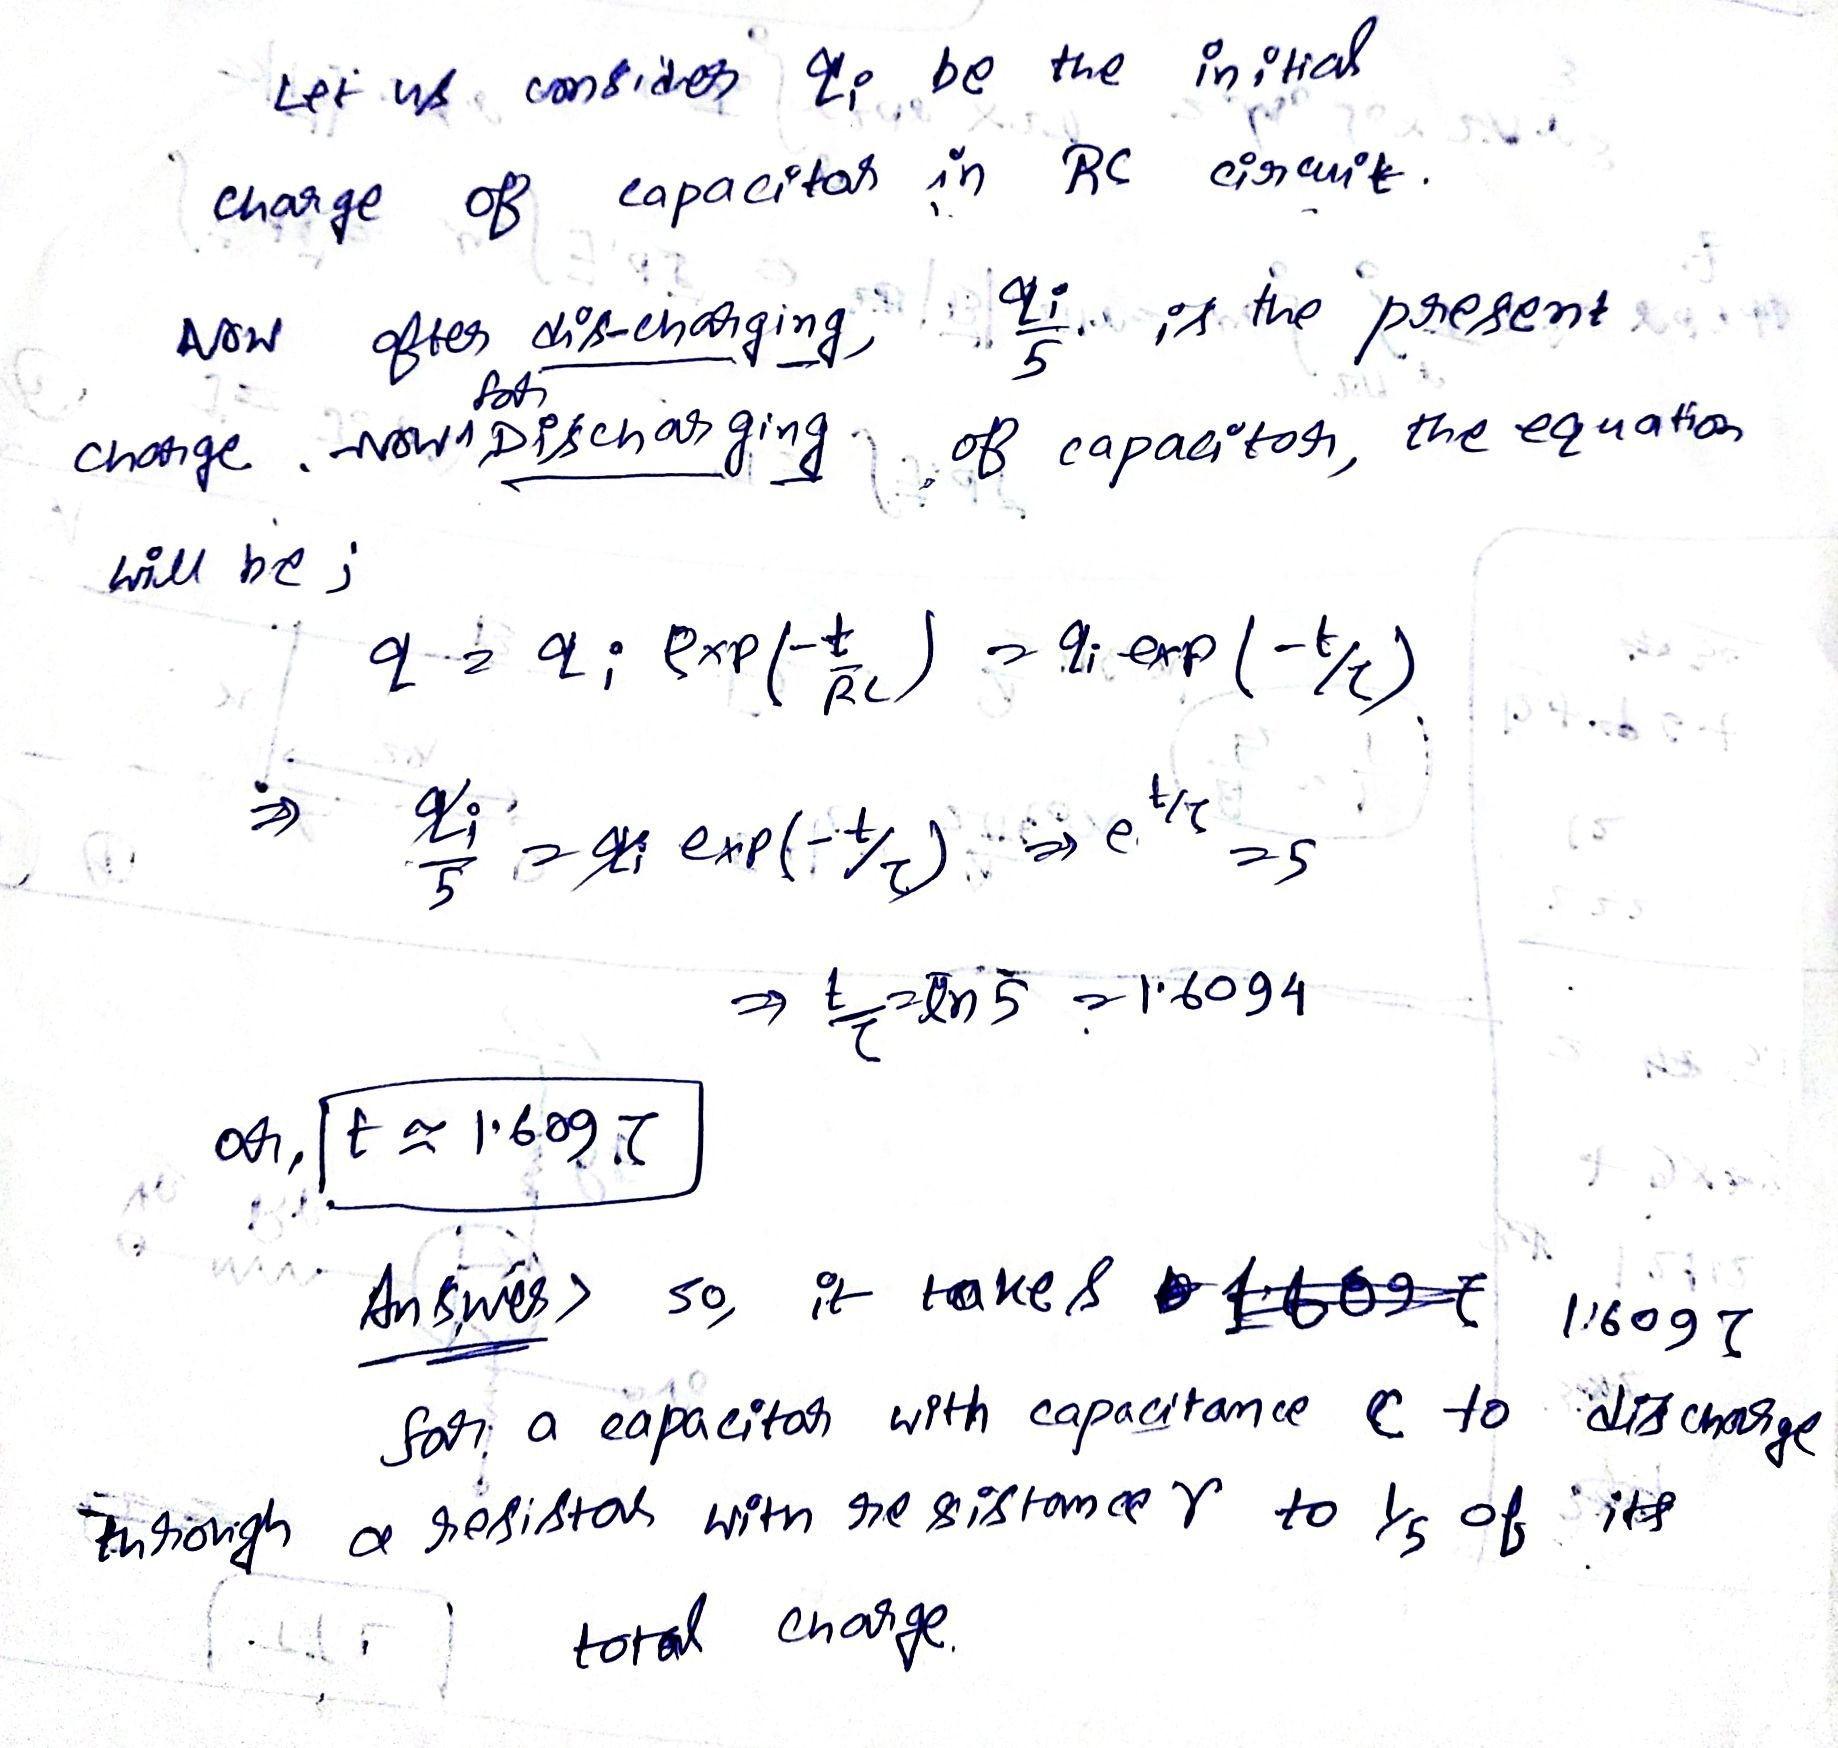 Let us consider qi be the initial
charge of capacitor in RC circuit.
Now after dis-charging, qi/5 is the present
charge. Now for Discharging of capacitor, the equation
will be;
q = qi exp(-t/RC) = qi exp(-t/τ)
⇒ qi/5 = qi exp(-t/τ) ⇒ e^t/τ = 5
⇒ t/τ = ln 5 = 1.6094
or, t ≃ 1.609 τ
Answer> so, it takes 1.609 τ
for a capacitor with capacitance C to discharge
through a resistor with resistance r to 1/5 of its
total charge.